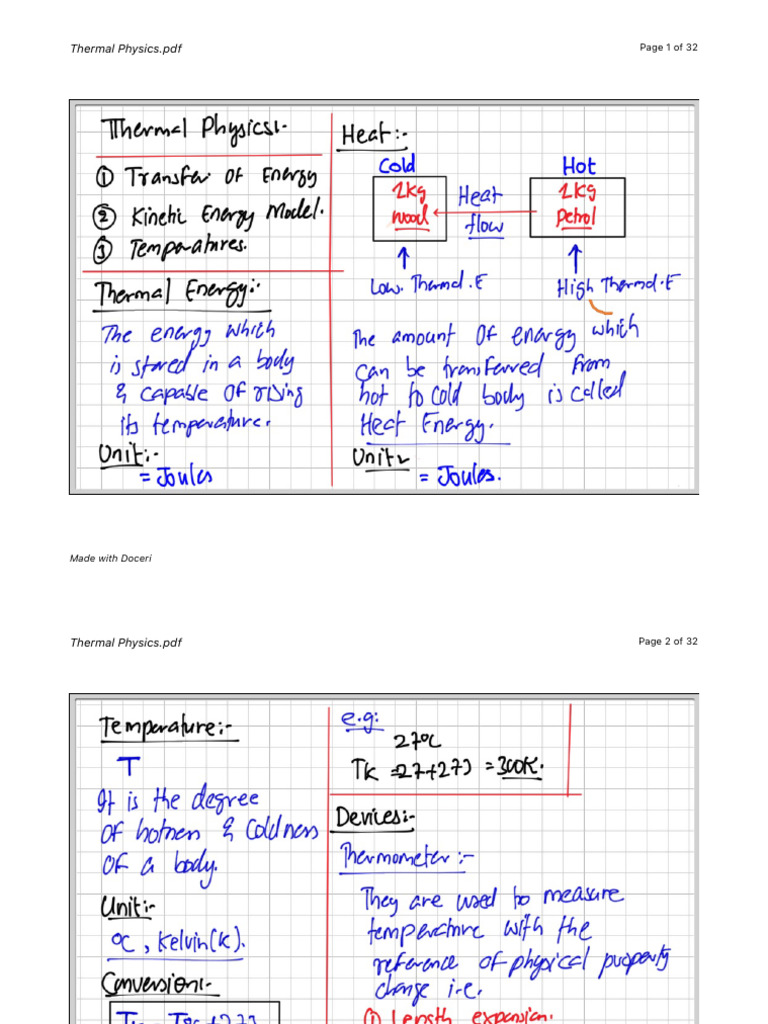 Thermal Physics.pdf
Page 1 of 32
Thermal Physics:-
① Transfer of Energy
② Kinetic Energy Model.
③ Temperatures.
Thermal Energy:-
The energy which
is stored in a body
& capable of rising
its temperature.
Unit:-
= Joules
Heat:-
Cold
Hot
1kg
wood
Heat
flow
1kg
petrol
Low. Thermal.E
High Thermal.E
The amount of energy which
can be transferred from
hot to cold body is called
Heat Energy.
Unit:-
= Joules.
Made with Doceri
Thermal Physics.pdf
Page 2 of 32
Temperature:-
T
It is the degree
of hotness & coldness
of a body.
Unit:-
°C, Kelvin(K).
Conversion:-
e.g:
27°C
TK = 27+273 = 300K.
Devices:-
Thermometer:-
They are used to measure
temperature with the
reference of physical property
change i.e.
① Length expansion.